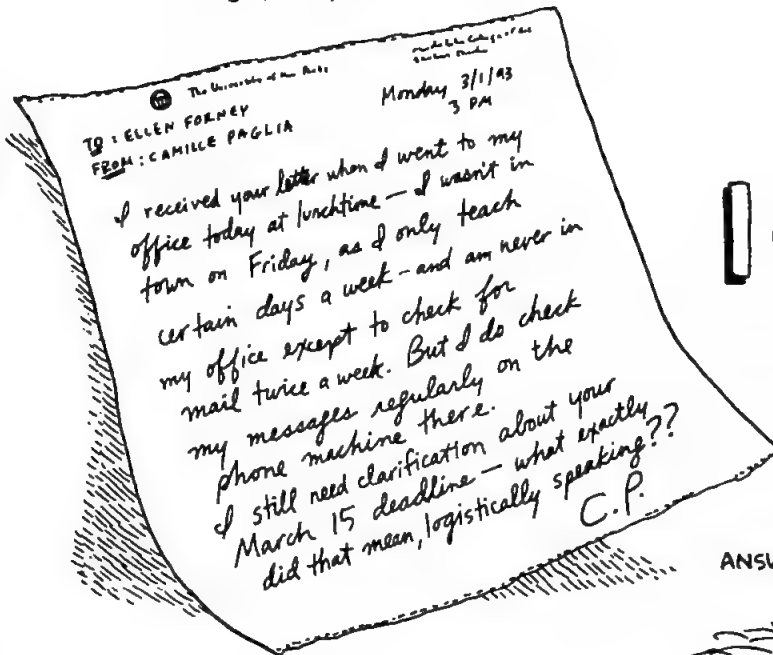 The University of the Arts
Monday 3/1/93
3 PM
TO: ELLEN FORNEY
FROM: CAMILLE PAGLIA
I received your letter when I went to my
office today at lunchtime — I wasn't in
town on Friday, as I only teach
certain days a week — and am never in
my office except to check for
mail twice a week. But I do check
my messages regularly on the
phone machine there.
I still need clarification about your
March 15 deadline — what exactly
did that mean, logistically speaking??
C.P.